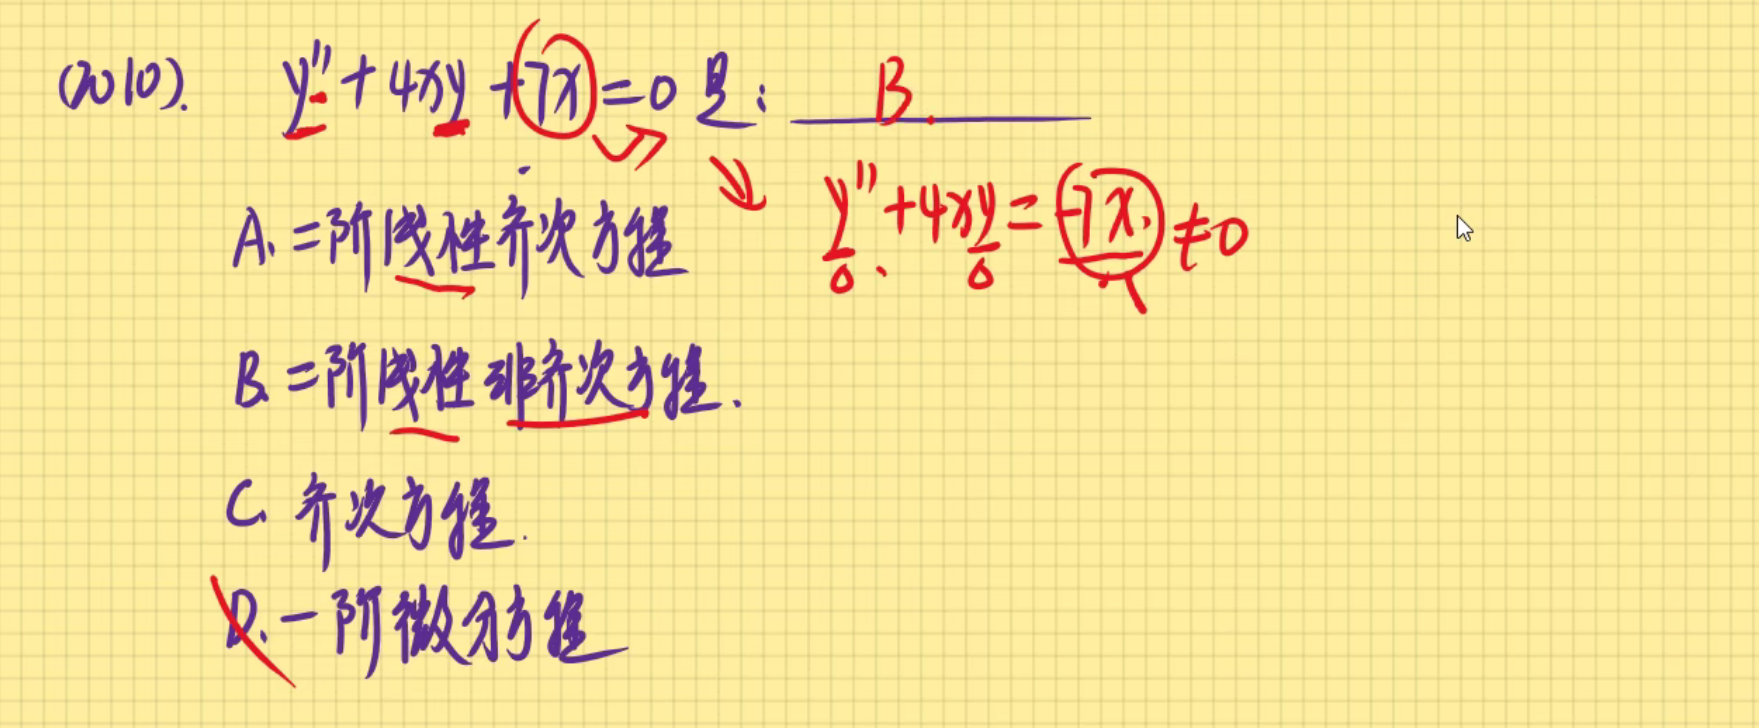 (2010). y''+4xy+7x=0 是: B.
y''+4xy=-7x≠0
A. 二阶线性齐次方程
B. 二阶线性非齐次方程.
C. 齐次方程.
D. 一阶微分方程